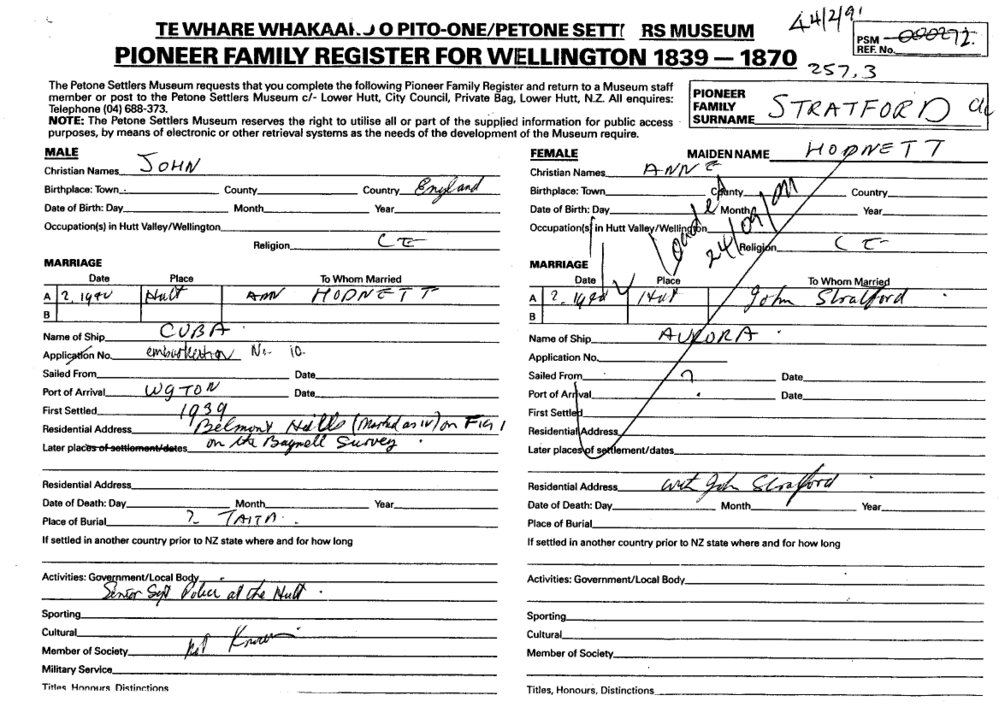 44/2/91
TE WHARE WHAKAAK O PITO-ONE/PETONE SETT RS MUSEUM
PIONEER FAMILY REGISTER FOR WELLINGTON 1839 — 1870
PSM REF. No. 090272.
257.3
The Petone Settlers Museum requests that you complete the following Pioneer Family Register and return to a Museum staff
member or post to the Petone Settlers Museum c/- Lower Hutt, City Council, Private Bag, Lower Hutt, N.Z. All enquires:
Telephone (04) 688-373.
NOTE: The Petone Settlers Museum reserves the right to utilise all or part of the supplied information for public access
purposes, by means of electronic or other retrieval systems as the needs of the development of the Museum require.
PIONEER FAMILY SURNAME STRATFORD
MALE
Christian Names JOHN
Birthplace: Town County Country England
Date of Birth: Day Month Year
Occupation(s) in Hutt Valley/Wellington
Religion CE
MARRIAGE
Date Place To Whom Married
A ?. 1940 Hutt ANN HODNETT
B
Name of Ship CUBA
Application No. embarkation No. 10.
Sailed From Date
Port of Arrival WGTON Date
First Settled 1939
Residential Address Belmont Hills (Marked as IV) on FIG 1
Later places of settlement/dates on the Bagnell Survey.
Residential Address
Date of Death: Day Month Year
Place of Burial ? TAITA.
If settled in another country prior to NZ state where and for how long
Activities: Government/Local Body
Senior Sgt Police at the Hutt.
Sporting
Cultural
Member of Society Not Known
Military Service
Titles, Honours, Distinctions
FEMALE MAIDEN NAME HODNETT
Christian Names ANNE
Birthplace: Town County Country
Date of Birth: Day Month Year
Occupation(s) in Hutt Valley/Wellington
Religion CE
24/09/01
MARRIAGE
Date Place To Whom Married
A ?. 1940 Hutt John Stratford
B
Name of Ship AURORA
Application No.
Sailed From ? Date
Port of Arrival Date
First Settled
Residential Address
Later places of settlement/dates
Residential Address with John Stratford
Date of Death: Day Month Year
Place of Burial
If settled in another country prior to NZ state where and for how long
Activities: Government/Local Body
Sporting
Cultural
Member of Society
Titles, Honours, Distinctions